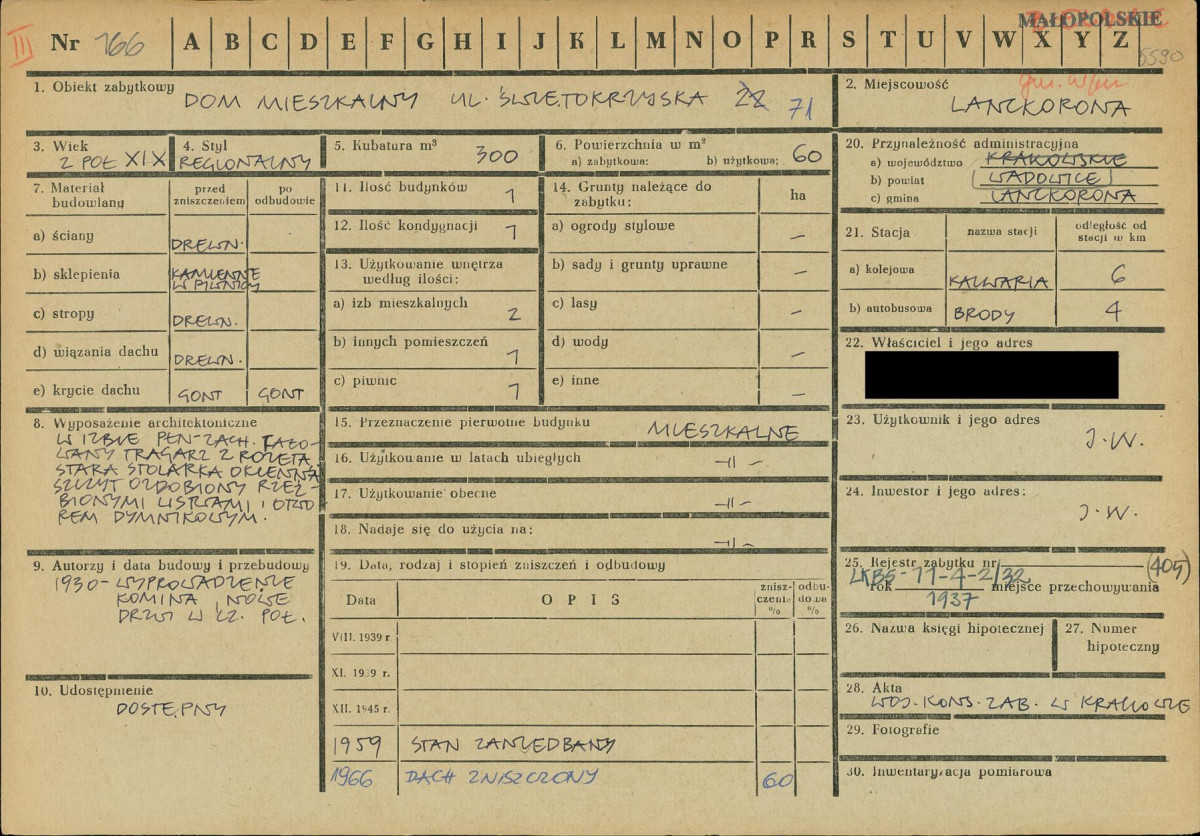 III Nr 166 A B C D E F G H I J K L M N O P R S T U V W X Y Z
MAŁOPOLSKIE
5590
1. Obiekt zabytkowy DOM MIESZKALNY UL. ŚWIĘTOKRZYSKA 22 71
2. Miejscowość
LANCKORONA
3. Wiek
2 POŁ XIX
4. Styl
REGIONALNY
5. Kubatura m³ 300
6. Powierzchnia w m²
a) zabytkowa: b) użytkowa: 60
20. Przynależność administracyjna
a) województwo KRAKOWSKIE
b) powiat (WADOWICE)
c) gmina LANCKORONA
7. Materiał budowlany
przed zniszczeniem
po odbudowie
a) ściany DREWN.
b) sklepienia KAMIENNE W PIWNICY
c) stropy DREWN.
d) wiązania dachu DREWN.
e) krycie dachu GONT GONT
11. Ilość budynków 1
12. Ilość kondygnacji 1
13. Użytkowanie wnętrza według ilości:
a) izb mieszkalnych 2
b) innych pomieszczeń 1
c) piwnic 1
14. Grunty należące do zabytku: ha
a) ogrody stylowe –
b) sady i grunty uprawne –
c) lasy –
d) wody –
e) inne –
21. Stacja nazwa stacji odległość od stacji w km
a) kolejowa KALWARIA 6
b) autobusowa BRODY 4
22. Właściciel i jego adres
8. Wyposażenie architektoniczne
W IZBIE PŁN-ZACH. FAZO-
WANY TRAGARZ Z ROZETĄ
STARA STOLARKA OKIENNA
SZCZYT OZDOBIONY RZEŹ-
BIONYMI LISTWAMI I OTWO
REM DYMNIKOWYM.
15. Przeznaczenie pierwotne budynku MIESZKALNE
16. Użytkowanie w latach ubiegłych –||–
17. Użytkowanie obecne –||–
18. Nadaje się do użycia na: –||–
23. Użytkownik i jego adres
J.W.
24. Inwestor i jego adres:
J.W.
9. Autorzy i data budowy i przebudowy
1930 – WYPROWADZENIE
KOMINA, NOWE
DRZWI W CZ. POŁ.
19. Data, rodzaj i stopień zniszczeń i odbudowy
Data OPIS zniszczenia % odbudowa %
VIII. 1939 r.
XI. 1939 r.
XII. 1945 r.
1959 STAN ZANIEDBANY
1966 DACH ZNISZCZONY 60
25. Rejestr zabytku nr (405)
LKBS-11-4-2/32
rok 1937 miejsce przechowywania
26. Nazwa księgi hipotecznej
27. Numer hipoteczny
10. Udostępnienie
DOSTĘPNY
28. Akta
WOJ. KONS. ZAB. W KRAKOWIE
29. Fotografie
30. Inwentaryzacja pomiarowa